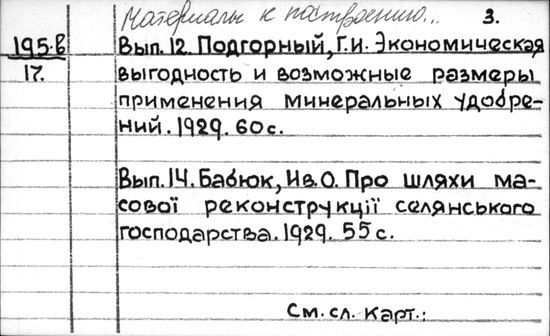 Материалы к построению... 3.
195.в
17.
Вып. 12. Подгорный, Г.И. Экономическая
выгодность и возможные размеры
применения минеральных удобре-
ний. 1929. 60 с.
Вып. 14. Бабюк, Ив. О. Про шляхи ма-
сової реконструкції селянського
господарства. 1929. 55 с.
См. сл. карт.: